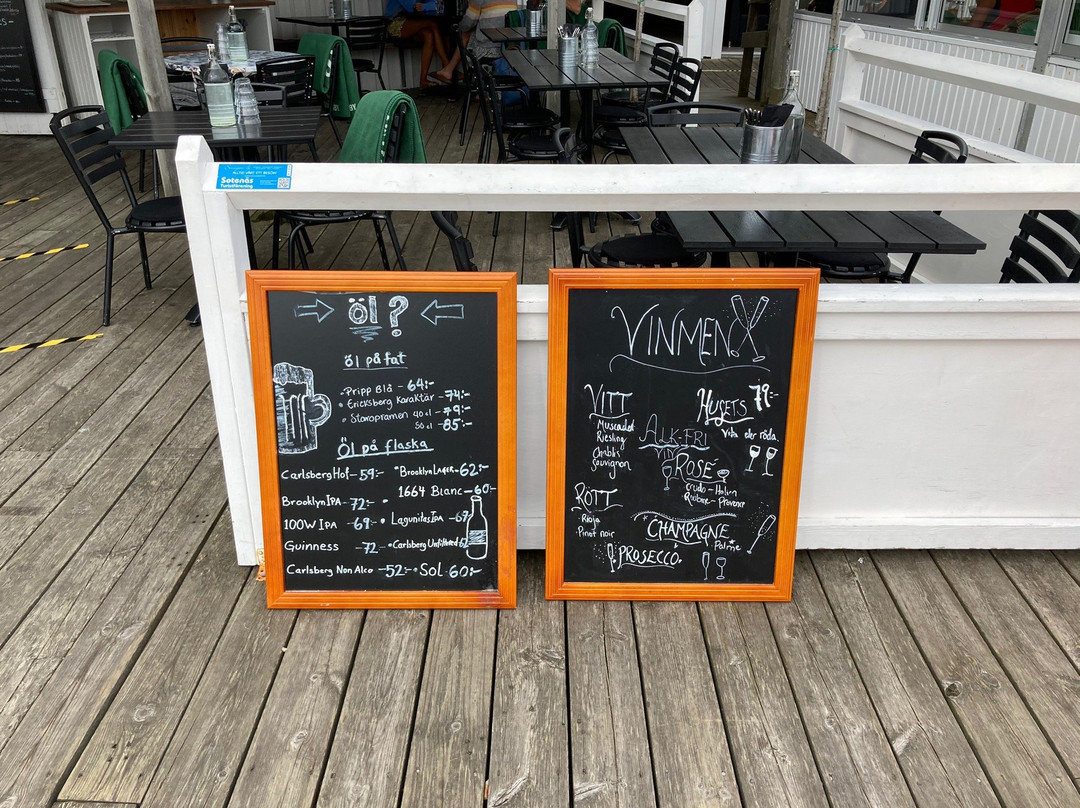 Sotenäs
Turistförening
öl?
öl på fat
Pripp Blå - 64:-
Ericksberg Karaktär - 74:-
Staropramen 40 cl - 79:-
50 cl - 85:-
Öl på flaska
Carlsberg Hof - 59:-
Brooklyn Lager - 62:-
1664 Blanc - 60:-
Brooklyn IPA - 72:-
100W IPA - 69:-
Lagunitas IPA - 67
Guinness - 72
Carlsberg Unfiltered 62
Carlsberg Non Alco - 52:-
Sol 60:-
VINMENY
VITT
Muscadet
Riesling
Chablis
Sauvignon
HUSETS 79:-
Vita eller röda.
ALK-FRI
VIN
ROSÉ
Crudo - Italien
Provence
RÖTT
Rioja
Pinot noir
CHAMPAGNE
Palmer
PROSECCO